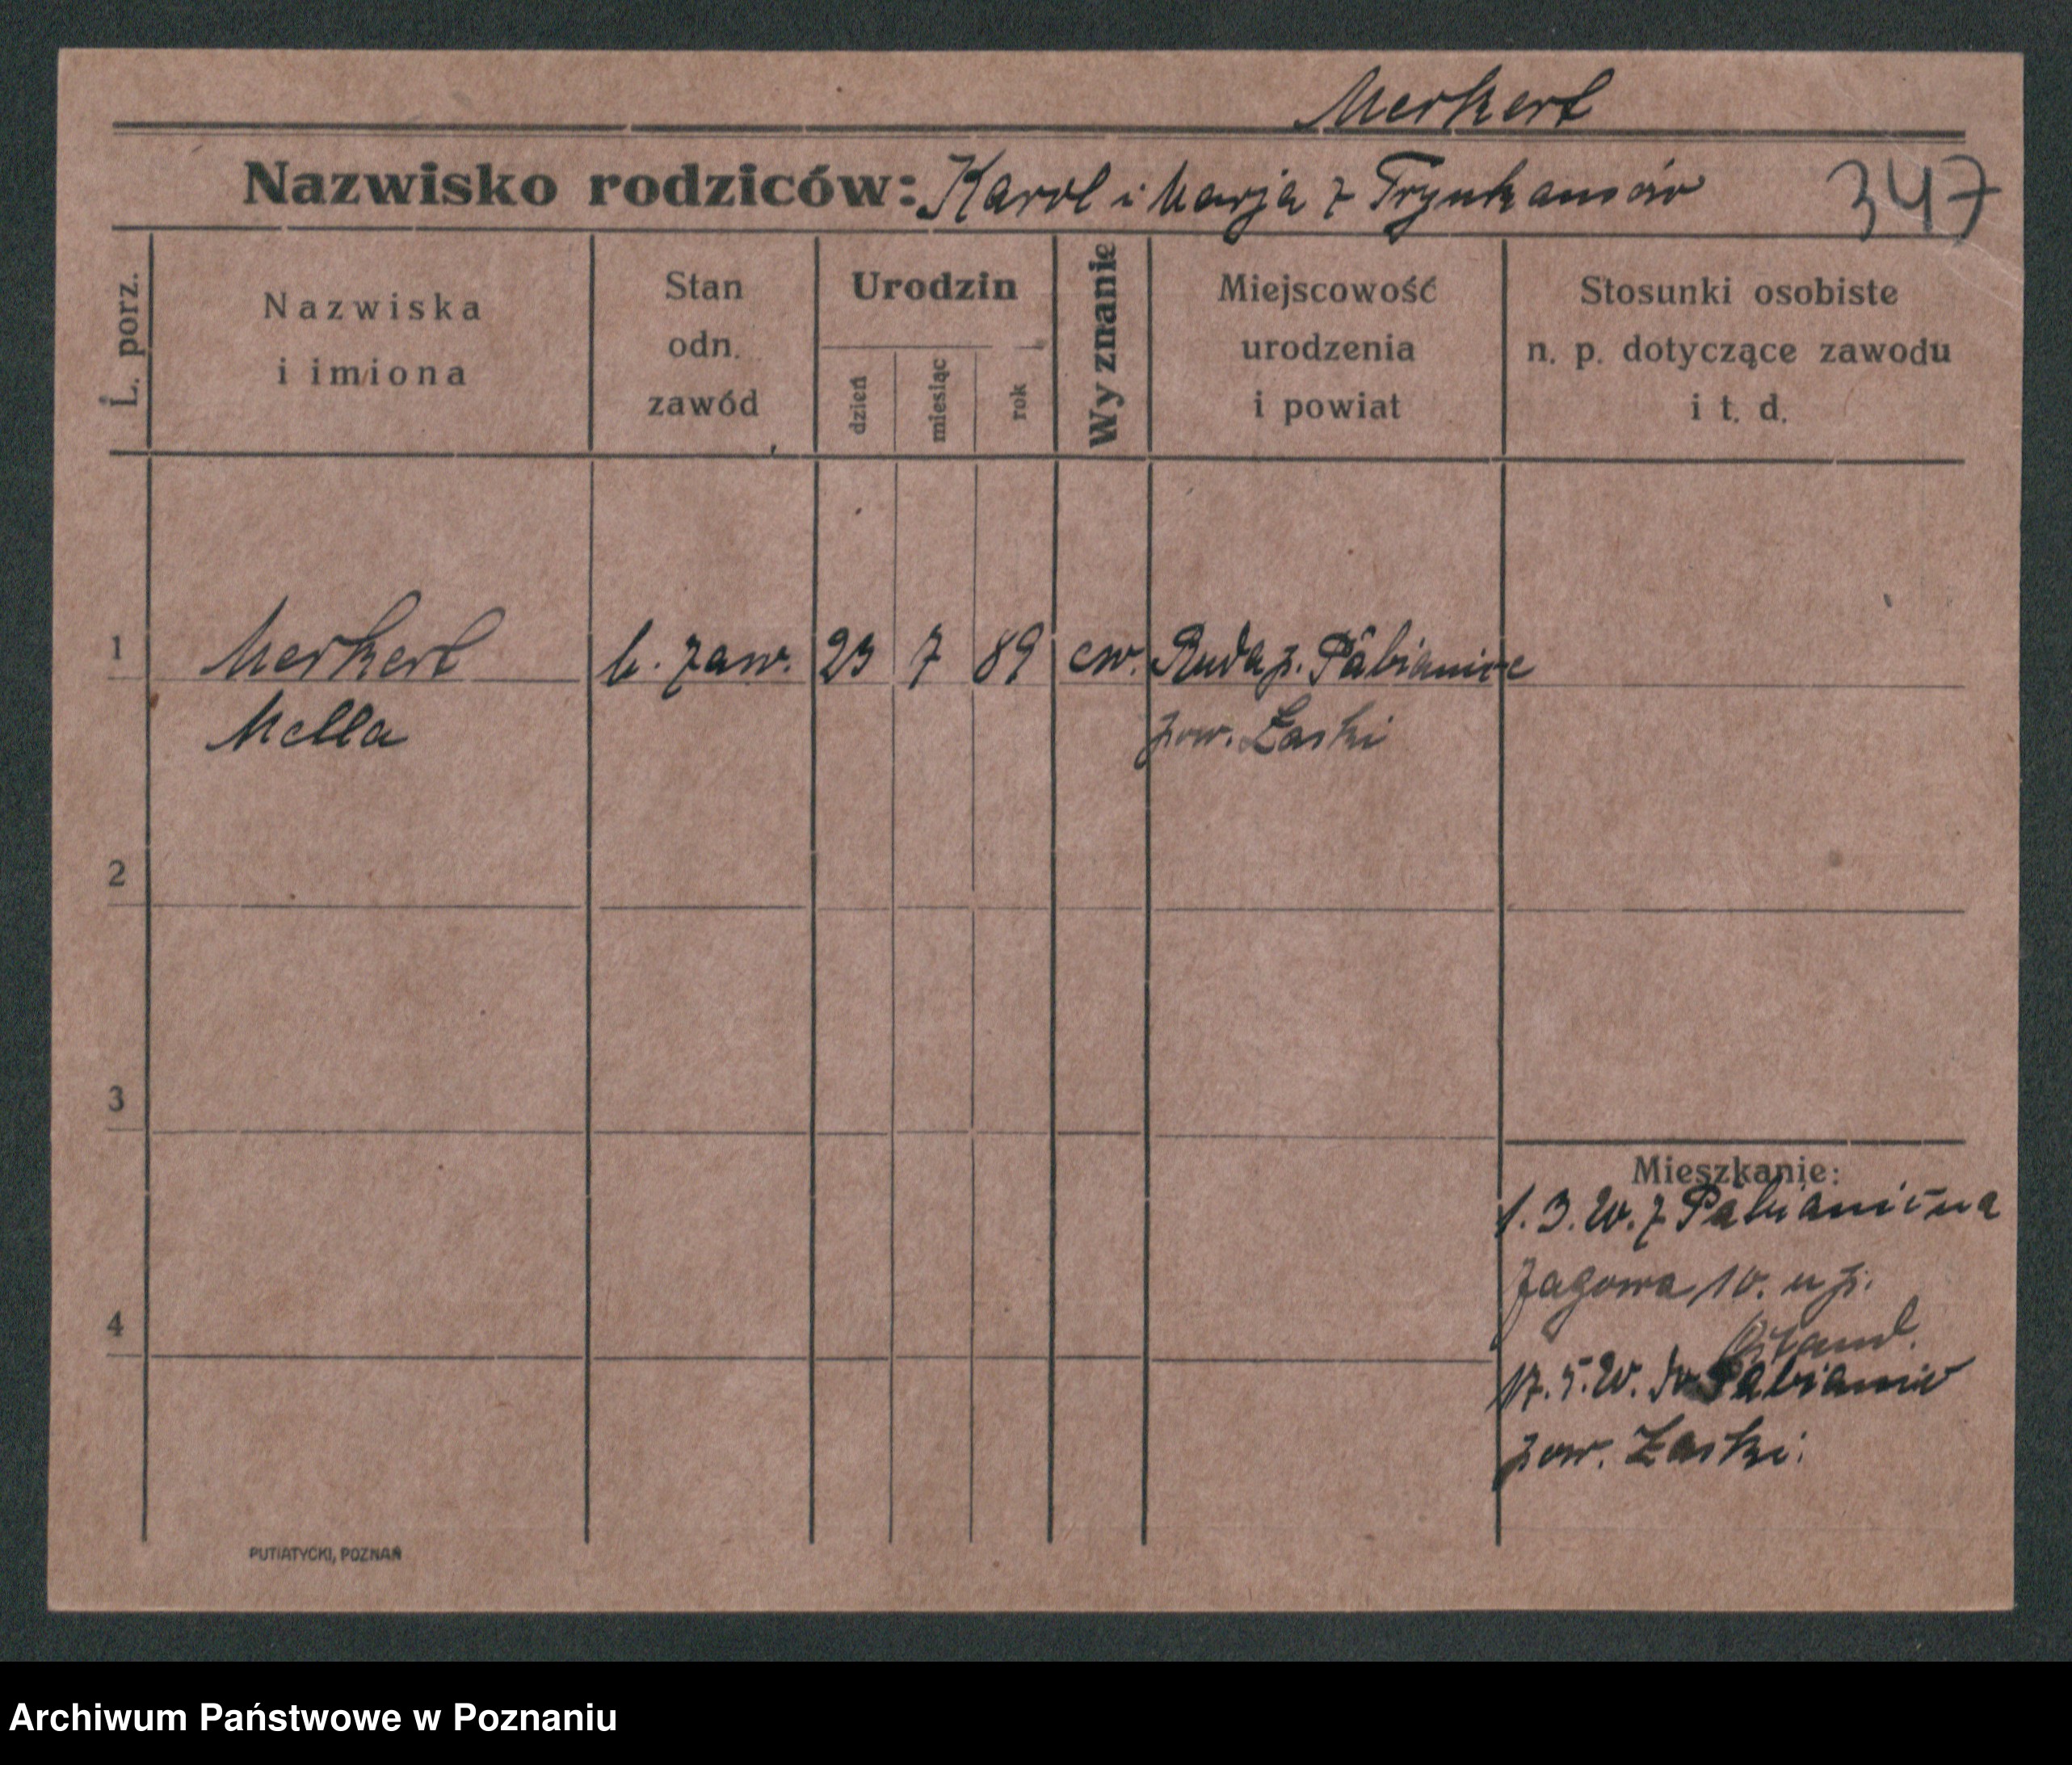 Merkert
Nazwisko rodziców: Karol i Marja z
347
L. porz.
Nazwiska
i imiona
Stan
odn.
zawód
Urodzin
dzień
miesiąc
rok
Wyznanie
Miejscowość
urodzenia
i powiat
Stosunki osobiste
n. p. dotyczące zawodu
i t. d.
1
Merkert
Mella
b. zaw.
23
7
89
ew.
Ruda p. Pabianice
pow. Łaski
2
3
4
Mieszkanie:
1. 3. 20. z
10. u p.
17. 5. 20. do Pabianic
pow. Łaski.
PUTIATYCKI, POZNAŃ
Archiwum Państwowe w Poznaniu